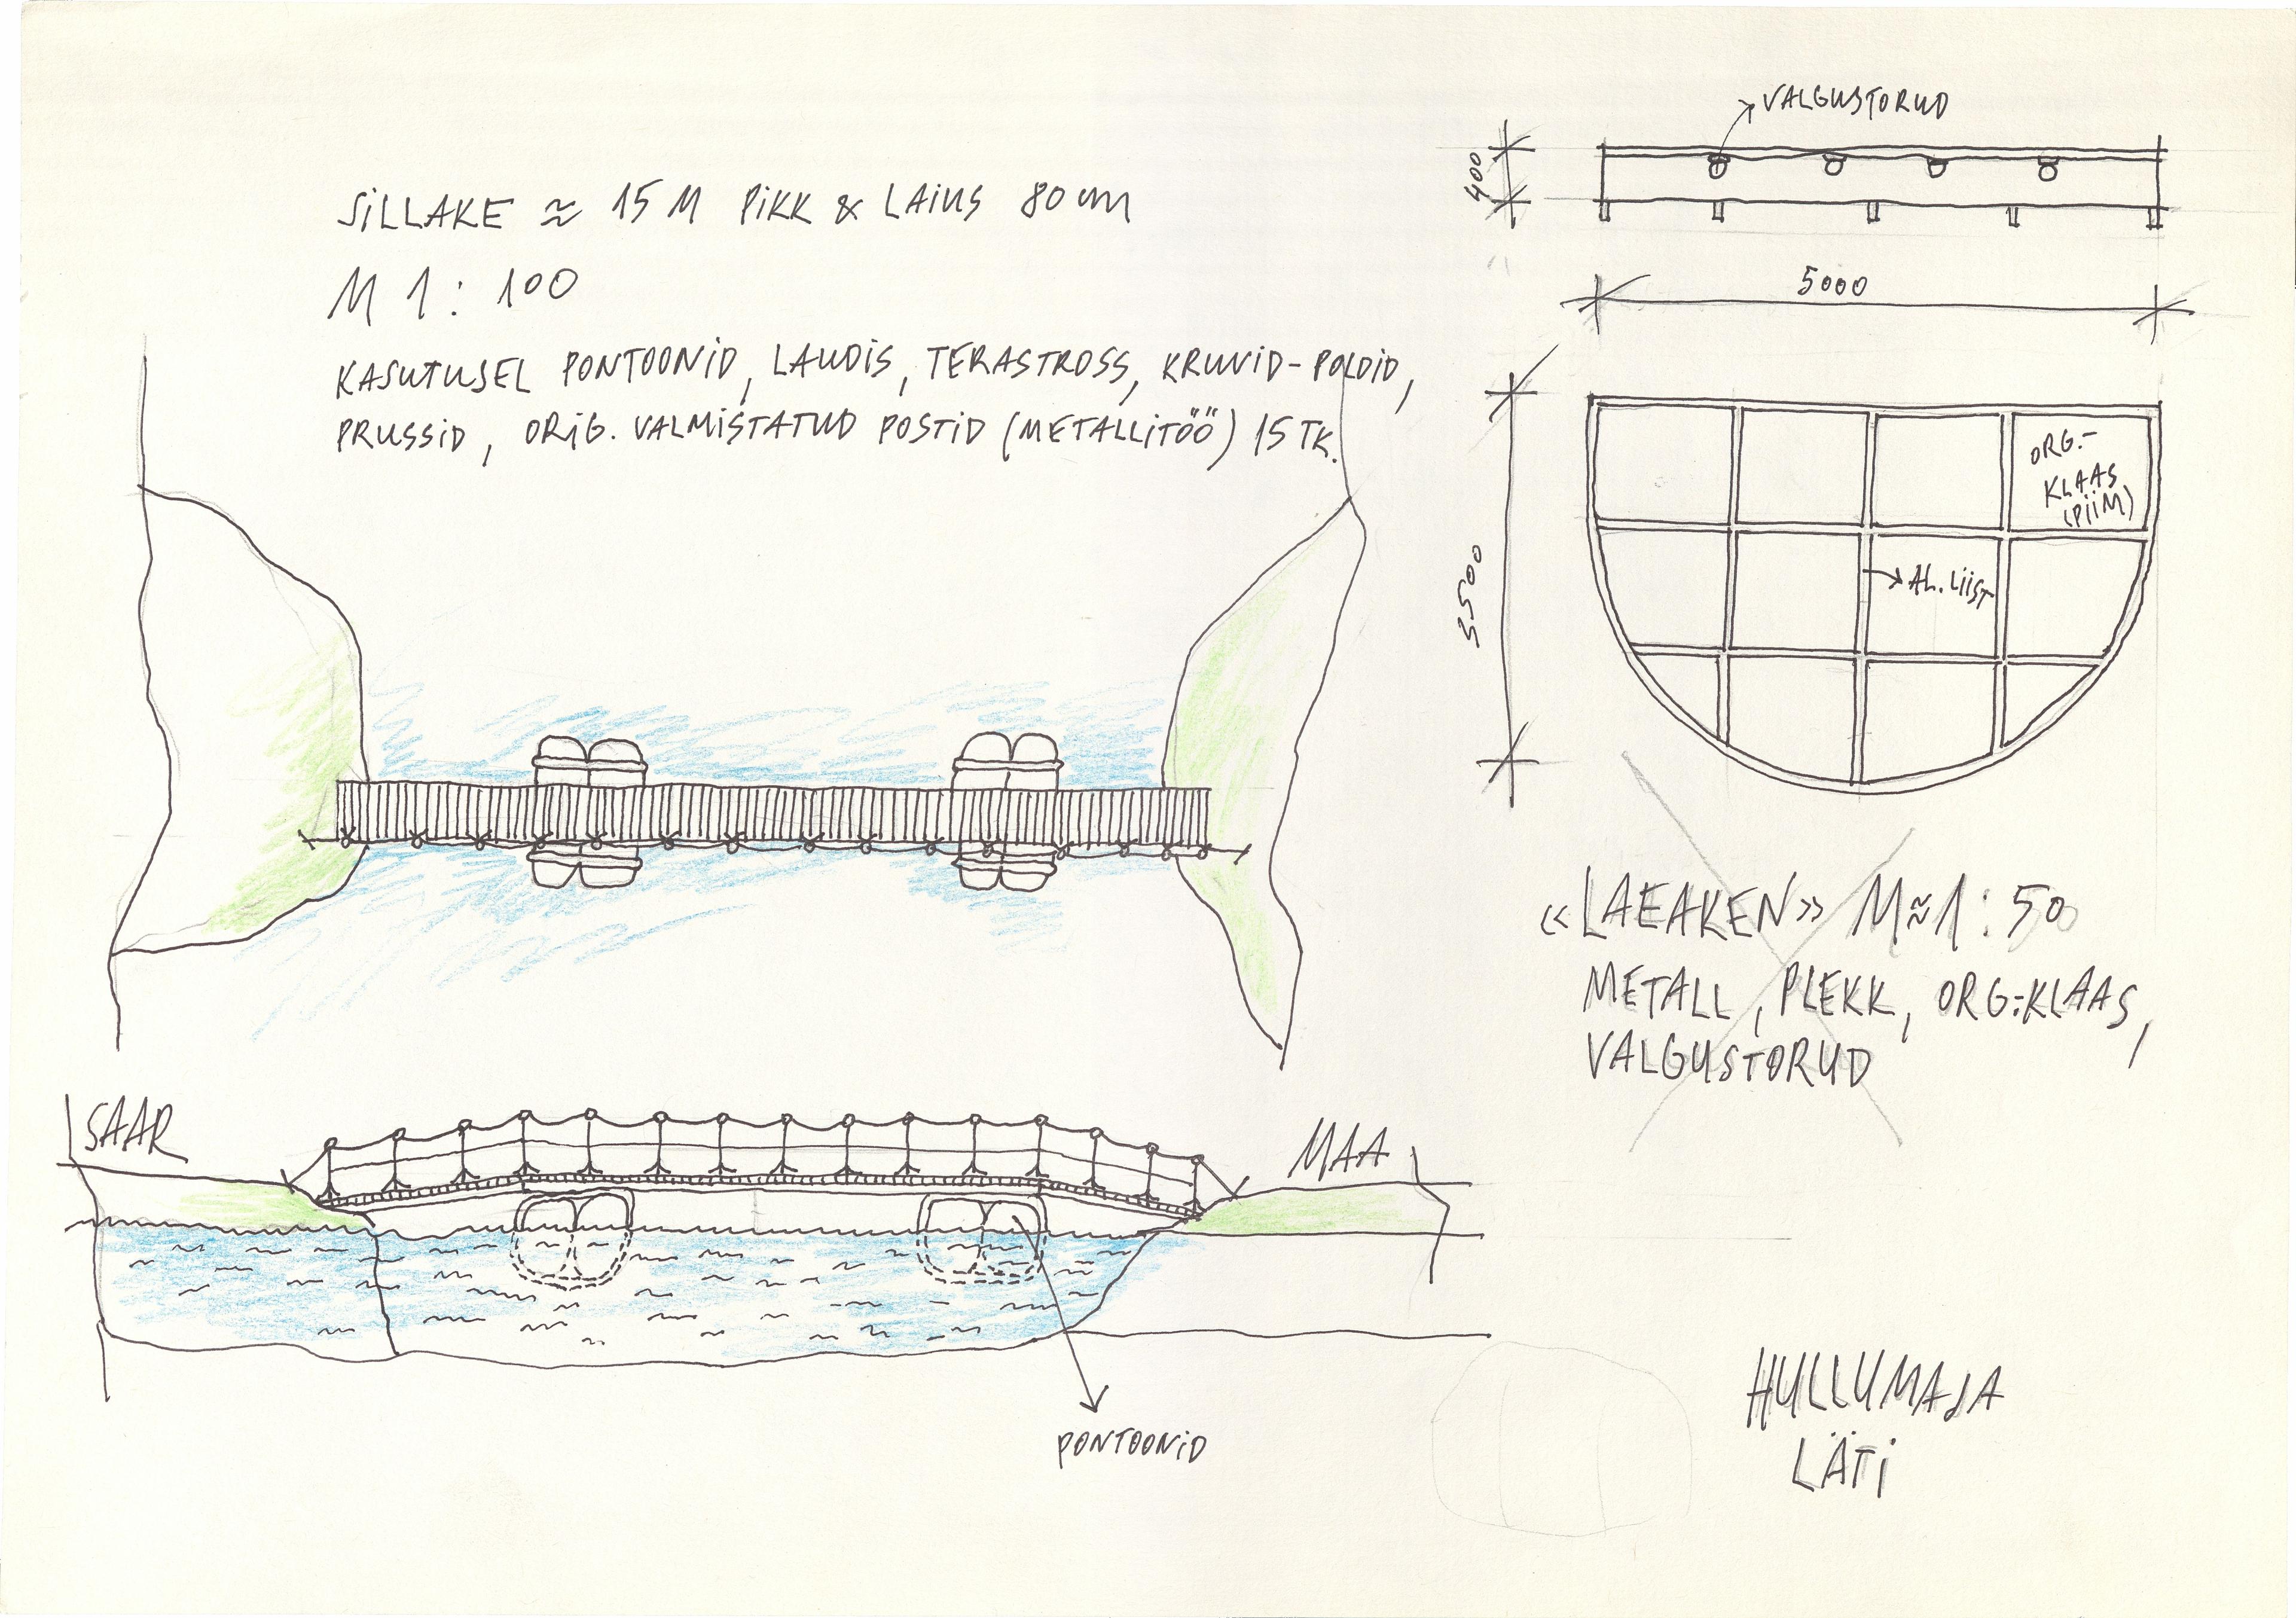 SILLAKE ≈ 15 M PIKK & LAIUS 80 cm
M 1 : 100
KASUTUSEL PONTOONID, LAUDIS, TERASTROSS, KRUVID-POLDID,
PRUSSID, ORIG. VALMISTATUD POSTID (METALLITÖÖ) 15 TK.
SAAR
MAA
PONTOONID
VALGUSTORUD
400
5000
3500
ORG.-
KLAAS
(PIIM)
AL. LIIST
«LAEAKEN» M≈1:50
METALL, PLEKK, ORG.-KLAAS,
VALGUSTORUD
HULLUMAJA
LÄTI